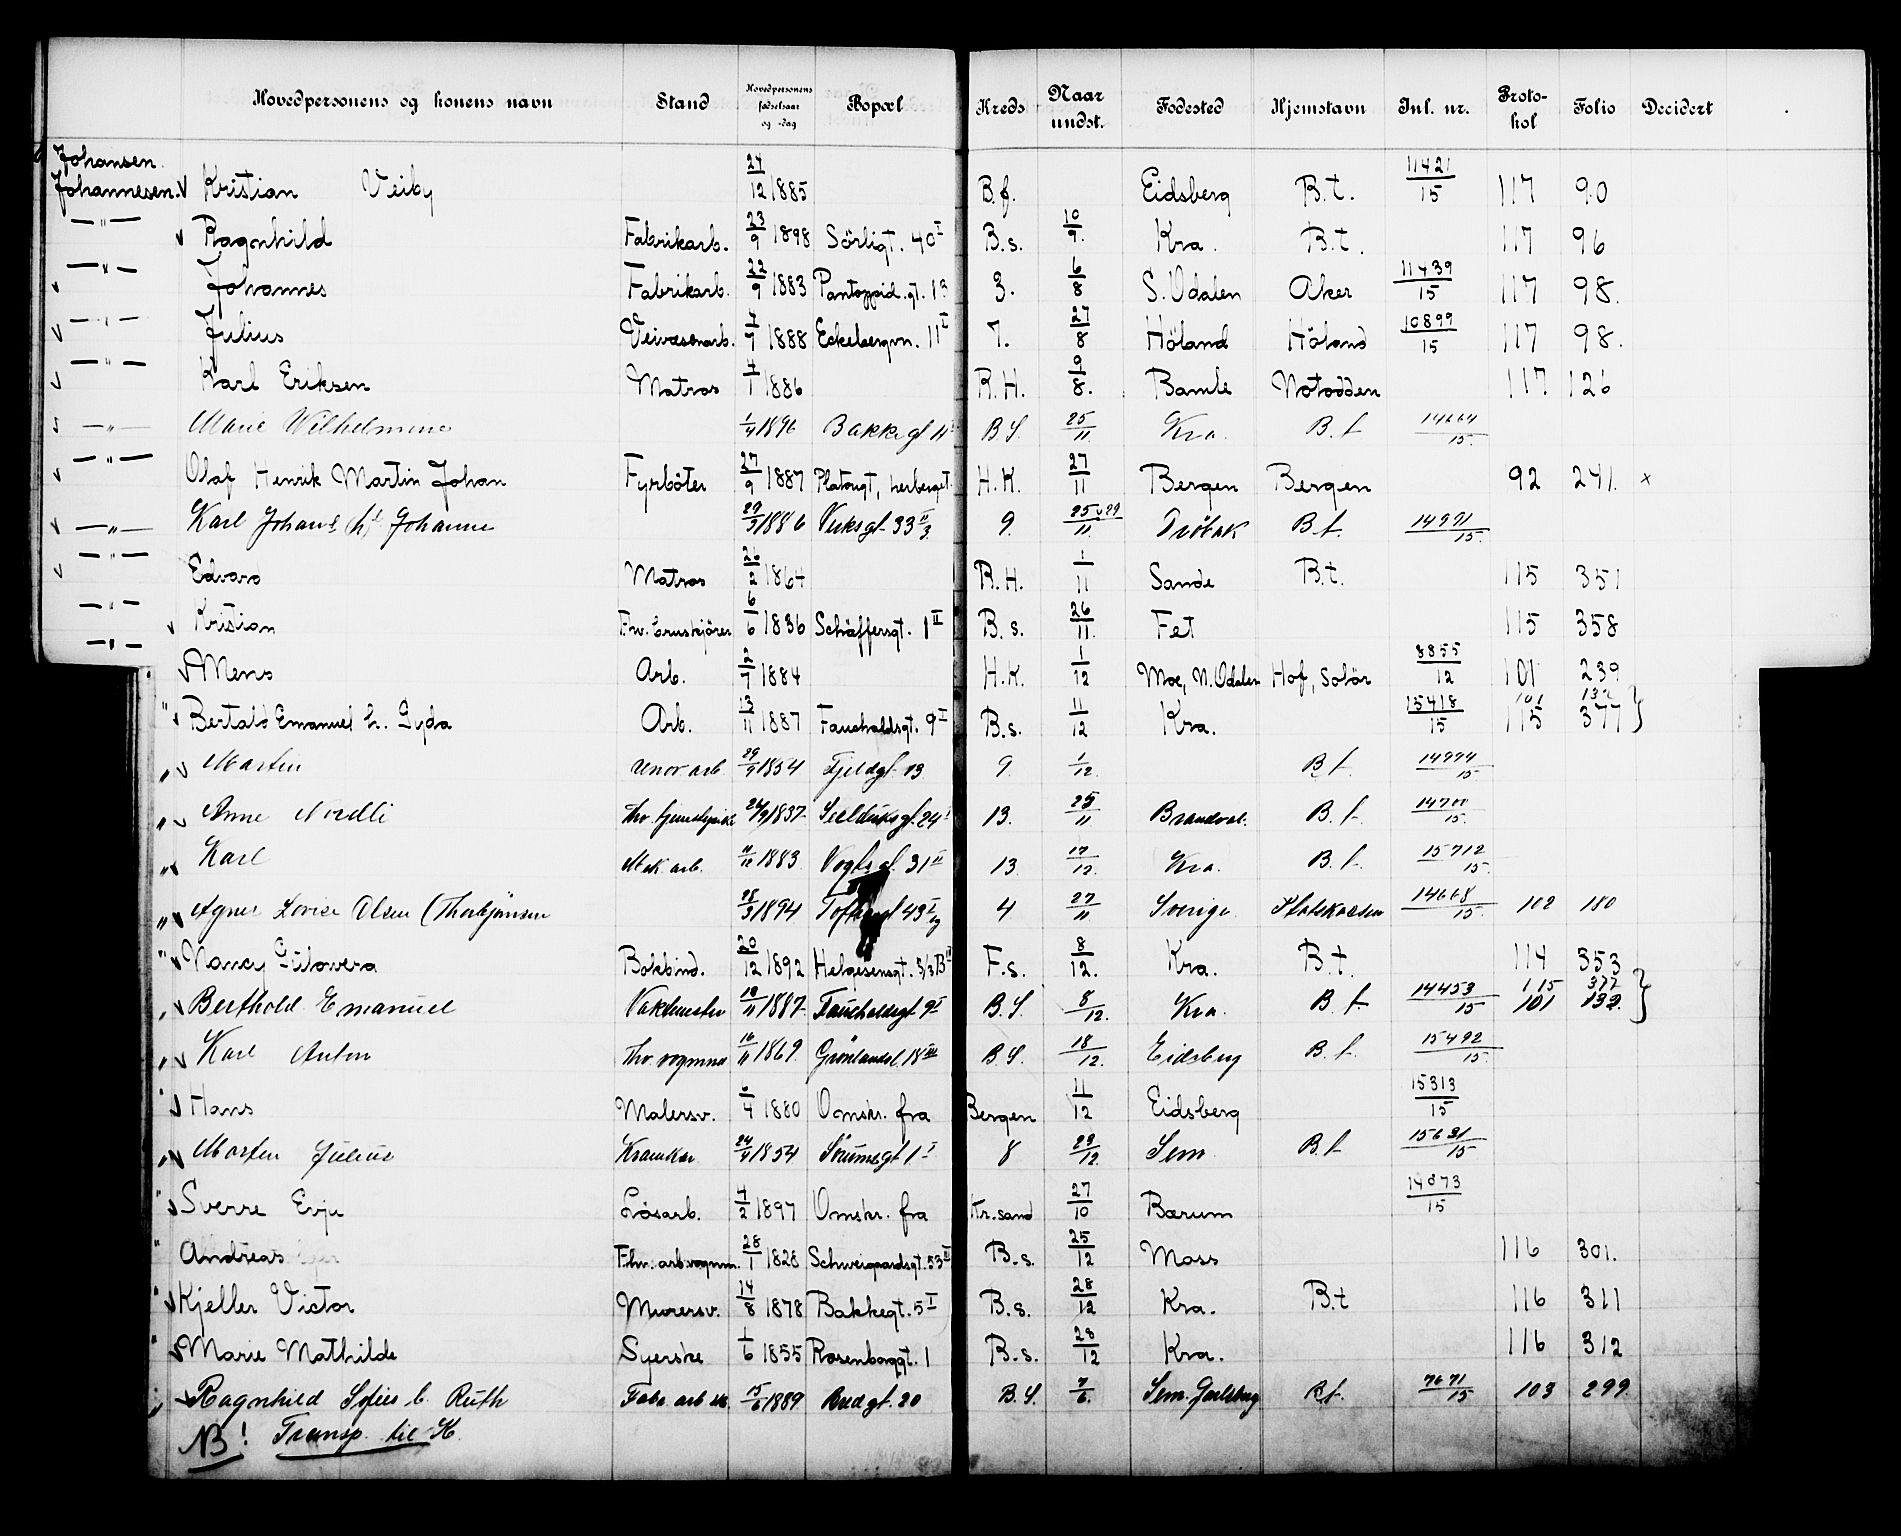 Hovedpersonens og konens navn Stand Hovedpersonens fødselsaar og -dag Bopæl Kreds Naar undst. Fødested Hjemstavn Inl. nr. Protokol Folio Decidert
Johansen
Johannesen. Kristian Veiby 24/12 1885 B.f. Eidsberg B.t. 11421/15 117 90
—"— Ragnhild Fabrikarb. 23/9 1898 Sörligt. 40 I B.s. 10/9. Kra. B.t. 117 96
—"— Johannes Fabrikarb. 22/9 1883 Pantoppid.gt. 13 3. 6/8 S. Odalen Aker 11439/15 117 98.
—"— Julius Veivæsenarb. 1888 Eckebergvn. 11 I 7. 27/8 Höland Höland 10899/15 117 98.
—"— Karl Eriksen Matros 1886 R.H. 9/8. Bamle Notodden 117. 126
—"— Marie Wilhelmine 1/4 1896 Bakkegt 11 B.S. 25/11 Kra. B.t 14664/15.
—"— Olaf Henrik Martin Johan Fyrböter 27/9 1887 Platougt, herberget. H.K. 27/11 Bergen Bergen 92 241. x
—"— Karl Johan Johanne 1886 Verksgt 33 II 3. 9. 25 & 29/11. Dröbak B.t. 14991/15.
—"— Edvard Matros 26/2 1864 R.H. 1/11 Sande B.t. 115 351
—"— Kristian 6/6 1836 Schäffersgt. 1 II B.s. 26/11. Fet 115 358
—"— Mens Arb. 2/7 1884 H.K. 1/12 Moe, N. Odalen Hof, Solör 8855/12 101 239
" Bertald Emanuel h. Gyda Arb. 13/11 1887 Fauchaldsgt. 9 I B.s. 11/12 Kra. 15418/15 101 132 115 377 }
" Marten arb. 29/9 1854 Fjeldgt 13 9. 1/12. B.t. 14994/15
" Anne Nordli 24/9 1837 Seilduksgt. 24 I 13. 25/11 Brandval. B.t. 14700/15.
" Karl Mek. arb. 11/12 1883. Vogtsgt. 31 II 13 17/12. Kra. B.t. 15712/15.
" Agnes Lovise Olsen (Thorbjörnsen 28/3 1894 Toftesgt 43 I 4 27/11 Sverige 14668/15. 102 180
" Nancy Gulovera Bokbind. 20/12 1892 Helgesensgt. F.s. 8/12. Kra. B.t. 114 353
" Berthold Emanuel Vaktmester 13/11 1887. Fauchaldsgt 9 I B.S. 8/12. Kra. B.t 14453/15 115 377 101 132. }
" Karl Anton 16/11 1869. Grönlandsl. 18 III B.S. 18/12. Eidsberg B.t. 15492/15.
" Hans Malersv. 1880 Omskr. fra Bergen 11/12 Eidsberg 15313/15
" Marten Julius Krankar 24/4 1854 Sörumsgt 1 I 8 23/12. Sem B.t 15631/15
" Sverre Evju Løsarb. 4/2 1897 Omskr. fra Kr.sand 27/10 Bærum 14073/15
" Andreas Fhv. arb. vognm. 28/1 1828 Schweigaardsgt. 53 II B.s. 25/12 Moss 116 301.
" Kjeller Victor Murersv. 14/8 1878 Bakkegt. 5 I B.s. 28/12 Kra. B.t 116 311
" Marie Mathilde Syerske 1/6 1855 Rosenborggt. 1 B.s. 28/12 Kra. 116 312
" Ragnhild Sofies b. Ruth Fabr. arb. 15/6 1889 Rudgt. 20 B.S. 7/6. Sem. Jarlsberg B.t. 7671/15 103 299.
NB! Transp. til K.